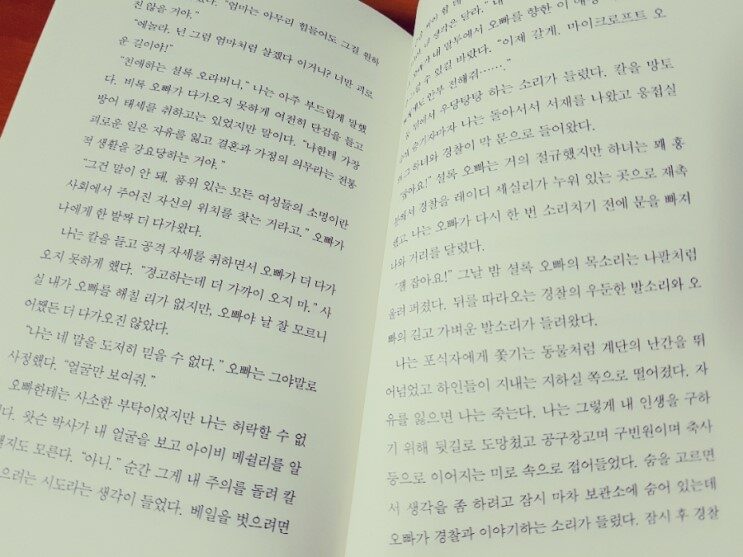 "엄마는 아무리 힘들어도 그걸 원하
진 않을 거야."
"에놀라. 넌 그럼 엄마처럼 살겠다 이거냐? 너만 괴로
운 길이야!"
"친애하는 셜록 오라버니," 나는 아주 부드럽게 말했
다. 비록 오빠가 다가오지 못하게 여전히 단검을 들고
방어 태세를 취하고는 있었지만 말이다. "나한테 가장
괴로운 일은 자유를 잃고 결혼과 가정의 의무라는 전통
적 생활을 강요당하는 거야."
"그건 말이 안 돼. 품위 있는 모든 여성들의 소명이란
사회에서 주어진 자신의 위치를 찾는 거라고." 오빠가
나에게 한 발짝 더 다가왔다.
나는 칼을 들고 공격 자세를 취하면서 오빠가 더 다가
오지 못하게 했다. "경고하는데 더 가까이 오지 마." 사
실 내가 오빠를 해칠 리가 없지만, 오빠야 날 잘 모르니
어쨌든 더 다가오진 않았다.
"나는 네 말을 도저히 믿을 수 없다." 오빠는 그야말로
사정했다. "얼굴만 보여줘."
오빠한테는 사소한 부탁이었지만 나는 허락할 수 없
다. 왓슨 박사가 내 얼굴을 보고 아이비 메쉴리를 알
지도 모른다. "아니." 순간 그게 내 주의를 돌려 칼
으려는 시도라는 생각이 들었다. 베일을 벗으려면
생각은 달라."
오빠를 향한 이
수 있길 바랐다. "이제 갈게. 마이크로프트 오
안부 전해줘……."
우당탕탕 하는 소리가 들렸다. 칼을 망토
숨기자마자 나는 돌아서서 서재를 나왔고 응접실
하녀와 경찰이 막 문으로 들어왔다.
"잡아요!" 셜록 오빠는 거의 절규했지만 하녀는 꽤 흥
분해서 경찰을 레이디 세실리가 누워 있는 곳으로 재촉
했고, 나는 오빠가 다시 한 번 소리치기 전에 문을 빠져
나와 거리를 달렸다.
"걜 잡아요!" 그날 밤 셜록 오빠의 목소리는 나팔처럼
울려 퍼졌다. 뒤를 따라오는 경찰의 우둔한 발소리와 오
빠의 길고 가벼운 발소리가 들려왔다.
나는 포식자에게 쫓기는 동물처럼 계단의 난간을 뛰
어넘었고 하인들이 지내는 지하실 쪽으로 떨어졌다. 자
유를 잃으면 나는 죽는다. 나는 그렇게 내 인생을 구하
기 위해 뒷길로 도망쳤고 공구창고며 구빈원이며 축사
등으로 이어지는 미로 속으로 접어들었다. 숨을 고르면
서 생각을 좀 하려고 잠시 마차 보관소에 숨어 있는데
오빠가 경찰과 이야기하는 소리가 들렸다. 잠시 후 경찰